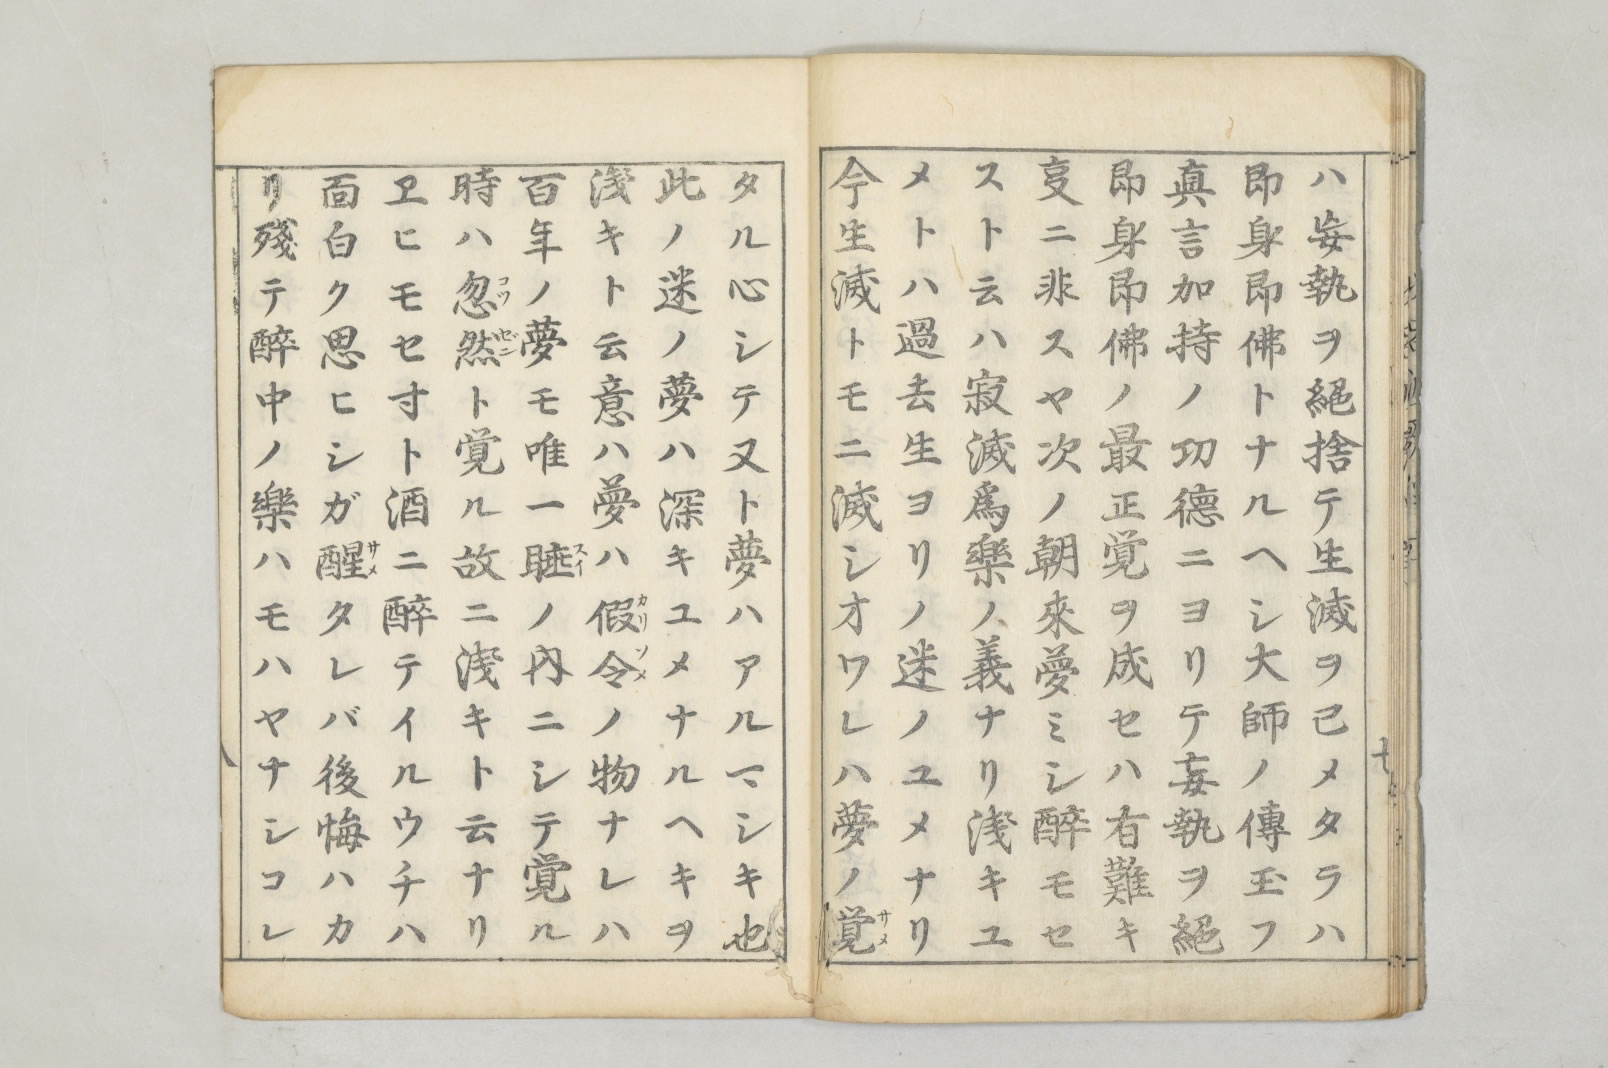 ハ妄執ヲ絕捨テ生滅ヲ已メタラハ
即身即佛トナルヘシ大師ノ傳玉フ
眞言加持ノ功德ニヨリテ妄執ヲ絕
即身即佛ノ最正覚ヲ成セハ有難キ
㕝ニ非スヤ次ノ朝來夢ミシ醉モセ
スト云ハ寂滅爲樂ノ義ナリ浅キユ
メトハ過去生ヨリノ迷ノユメナリ
今生滅トモニ滅シオワレハ夢ノ覚サメ
タル心シテ又ト夢ハアルマシキ也
此ノ迷ノ夢ハ深キユメナルヘキヲ
浅キト云意ハ夢ハ假令カリソメノ物ナレハ
百年ノ夢モ唯一睡スイノ内ニシテ覚ル
時ハ忽然コツゼント覚ル故ニ浅キト云ナリ
ヱヒモセ寸ト酒ニ醉テイルウチハ
面白ク思ヒシガ醒サメタレバ後悔ハカ
リ殘テ醉中ノ樂ハモハヤナシコレ